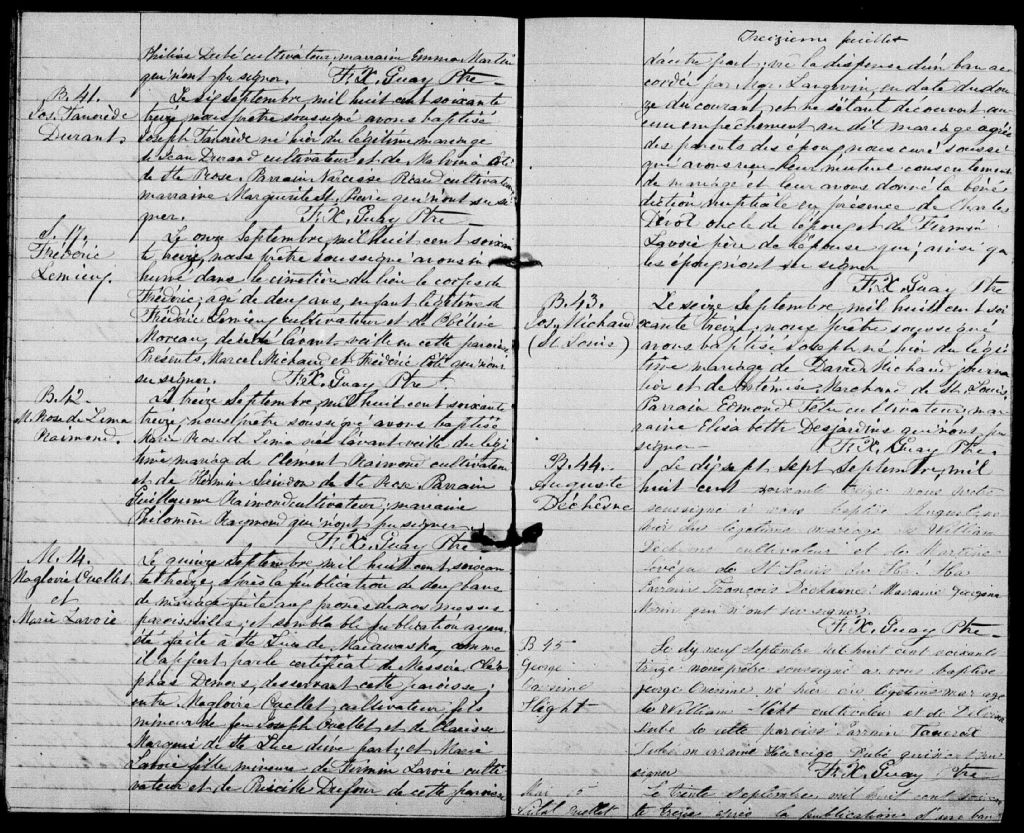 Philias Dubé cultivateur, marraine Emma Martin
qui n'ont pu signer. F. X. Guay Ptre
B. 41.
Jos. Tancrède
Durant.
Le dix septembre mil huit cent soixante
treize, nous prêtre soussigné avons baptisé
Joseph Tancrède né hier du légitime mariage
de Jean Durand cultivateur et de Malvina
de Ste Rose. Parrain Narcisse cultivateur
marraine Marguerite St. Pierre qui n'ont su si-
gner. F. X. Guay Ptre
S. 17.
Frédéric
Lemieux.
Le onze Septembre, mil huit cent soixan
te treize, nous prêtre soussigné avons in
humé dans le cimetière du lieu le corps de
Frédéric, agé de deux ans, enfant légitime de
Frédéric Lemieux cultivateur et de Obéline
Moreau, décédé l'avant veille en cette paroisse
Présents, Marcel Michaud et Frédéric Coté qui n'ont
su signer. F. X. Guay Ptre
B. 42
M. Rose de Lima
Raimond.
Le treize Septembre, mil huit cent soixante
treize, nous prêtre soussigné avons baptisé
Marie Rose d. Lima née l'avant veille du légi
time mariage de Clément Raimond cultivateur
et de de Ste Rose Parrain
Guillaume Raimond cultivateur, marraine
Philomène Raymond qui n'ont pu signer
F. X. Guay Ptre
M. 14.
Magloire Ouellet
et
Marie Lavoie
Le quinze Septembre mil huit cent soixan
te treize, après la publication de deux bans
de mariage faite aux prones de nos messes
paroissiales, et semblable publication ayant
été faite à Ste Luce de Madawaska, comme
il appert par le certificat de Messire Cléo-
phas Demers, desservant cette paroisse;
entre Magloire Ouellet, cultivateur, fils
mineur de feu Joseph Ouellet et de Clarisse
Marquis de Ste Luce d'une part; et Marie
Lavoie fille mineure de Firmin Lavoie culti-
vateur et de Priscille Dufour de cette paroisse
Treizième feuillet
d'autre part; vu la dispense d'un ban ac
cordée par Mgr. Langevin, en date du dou
ze du courant, et ne s'étant découvert au-
cun empêchement au dit mariage agréé
des parents des époux, nous curé soussi
gné avons reçu leur mutuel consentement
de mariage et leur avons donné la béné
diction nuptiale en présence de Charles
oncle de l'époux, et de Firmin
Lavoie père de l'épouse qui, ainsi q.
les époux, n'ont su signer
F. X. Guay Ptre
B. 43.
Jos. Michaud
(St. Louis)
Le seize Septembre, mil huit cent soi
xante treize, nous prêtre soussigné
avons baptisé Joseph né hier du légi
time mariage de David Michaud journa
lier et de Marchand de St. Louis,
Parrain Edmond Têtu cultivateur, mar
raine Elisabeth Desjardins qui n'ont su
signer F. X. Guay Ptre
B. 44.
Auguste
Déchesne
Le dix sept Sept Septembre, mil
huit cent soixante treize nous prêtre
soussigné a vous baptisé
hier du légitime mariage de William
Dechesne cultivateur et de Martine
Levêque de St Louis du Ha! Ha
Parrain François Dechesne Marraine
qui n'ont su signer.
F. X. Guay Ptre
B 45
George
Onésime
Hight
Le dix neuf Septembre mil huit cent soixante
treize nous prêtre soussigné a vous baptisé
george Onésime né hier du légitime mariage
de William Hight cultivateur et de
Dubé de cette paroisse Parrain Tancrède
Dubé marraine Dubé qui n'ont su
signer F. X. Guay Ptre
Mar 15
Ouellet
Le trente Septembre mil huit cent soixan
te treize après la publication d'une ban